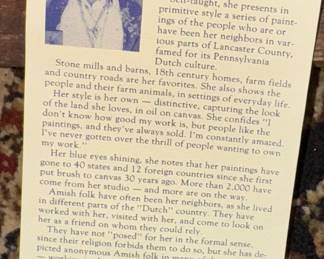 Self-taught, she presents in
primitive style a series of paint-
ings of the people who are or
have been her neighbors in var-
ious parts of Lancaster County,
famed for its Pennsylvania
Dutch culture.
Stone mills and barns, 18th century homes, farm fields
and country roads are her favorites. She also shows the
people and their farm animals, in settings of everyday life.
Her style is her own — distinctive, capturing the look
of the land she loves, in oil on canvas. She confides "I
don't know how good my work is, but people like the
paintings, and they've always sold. I'm constantly amazed.
I've never gotten over the thrill of people wanting to own
my work."
Her blue eyes shining, she notes that her paintings have
gone to 40 states and 12 foreign countries since she first
put brush to canvas 30 years ago. More than 2,000 have
come from her studio — and more are on the way.
Amish folk have often been her neighbors, as she lived
in different parts of the "Dutch" country. They have
worked with her, visited with her, and come to look on
her as a friend on whom they could rely.
They have not "posed" for her in the formal sense,
since their religion forbids them to do so, but she has de-
picted anonymous Amish folk in many of